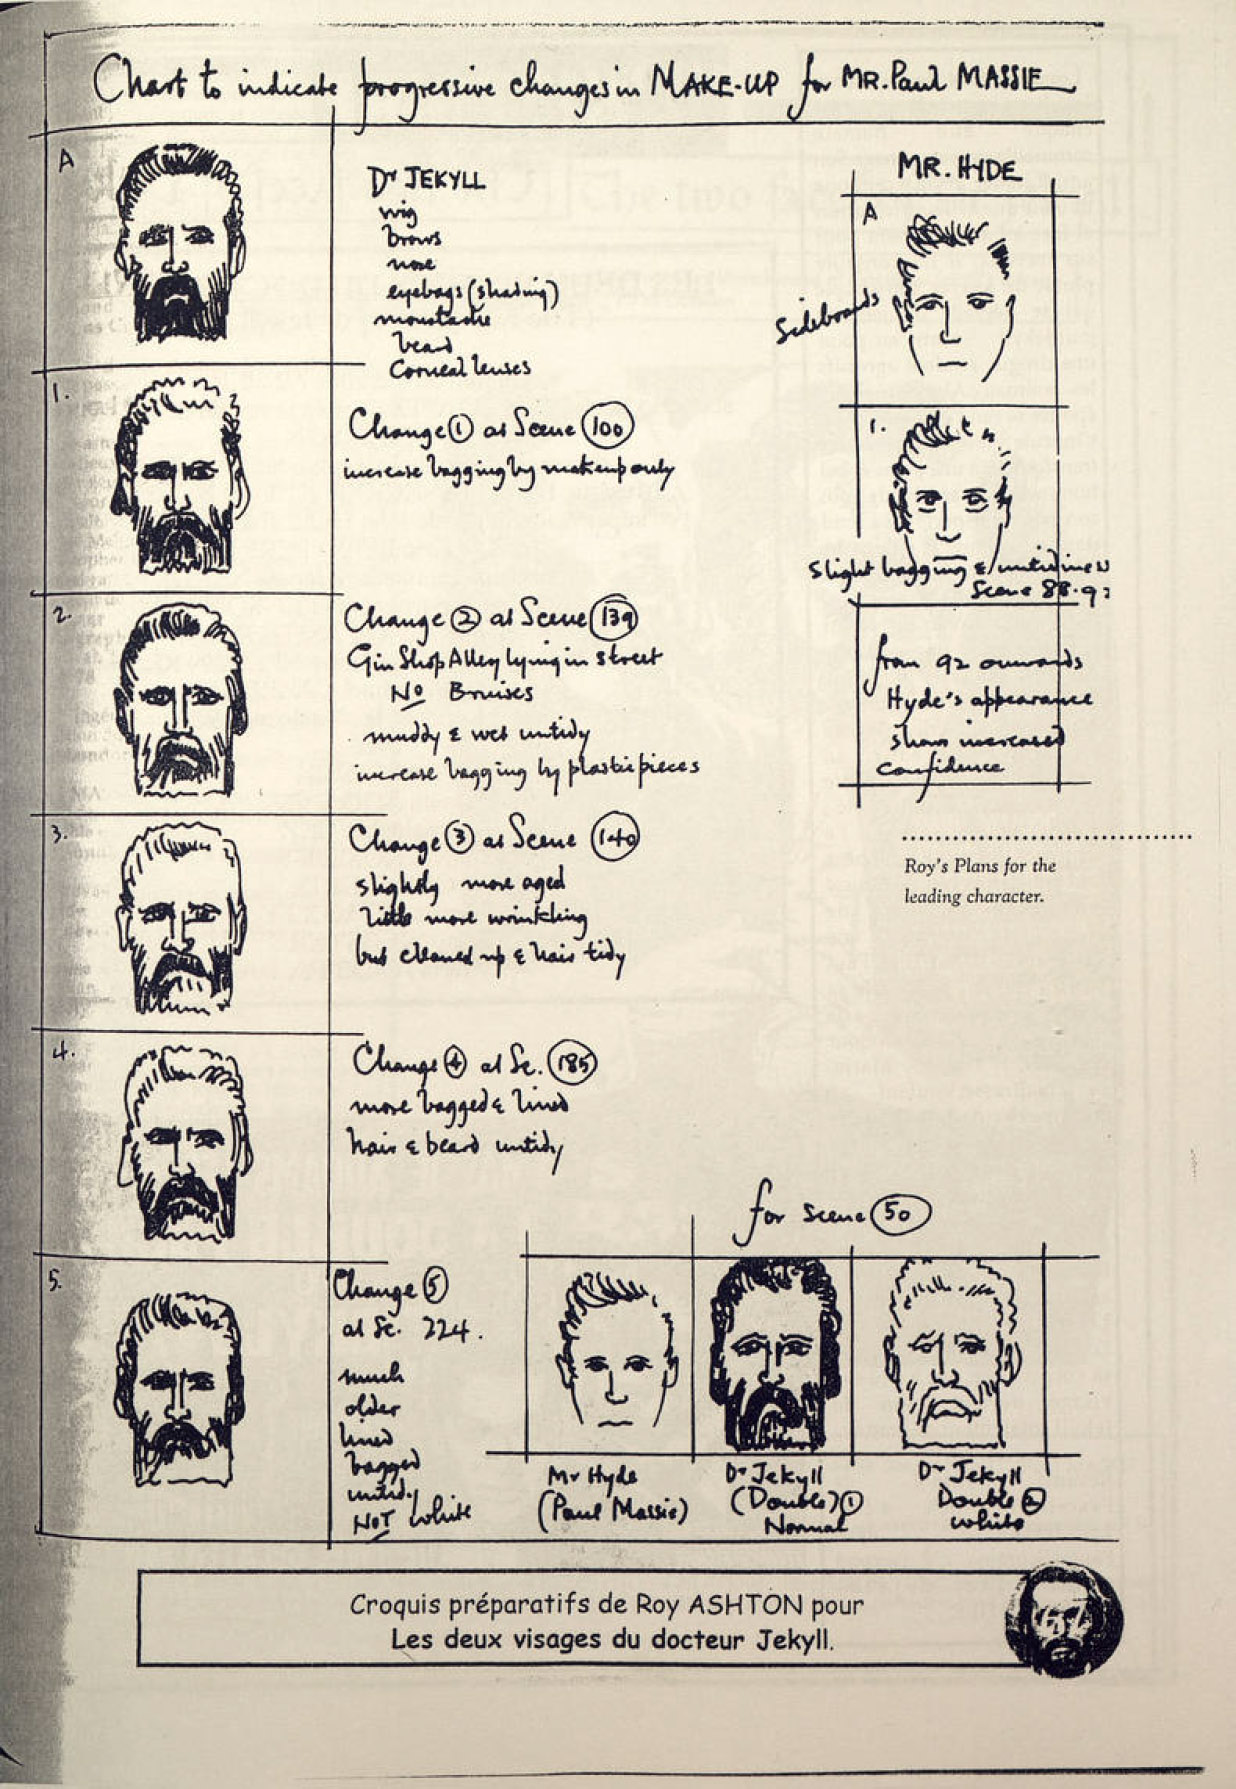 Chart to indicate progressive changes in MAKE-UP for MR. Paul MASSIE
A
Dr JEKYLL
wig
brows
nose
eyebags (shading)
moustache
beard
Corneal lenses
1.
Change 1 at Scene 100
increase bagging by makeup only
2.
Change 2 at Scene 139
Gin Shop Alley lying in street
No Bruises
muddy & wet untidy
increase bagging by plastic pieces
3.
Change 3 at Scene 140
slightly more aged
little more wrinkling
but cleaned up & hair tidy
4.
Change 4 at Sc. 185
more bagged & lined
hair & beard untidy
5.
Change 5
at Sc. 224.
much
older
lined
bagged
untidy
NOT white
MR. HYDE
A
Sideboards
1.
slight bagging & untidiness
Scene 88-92
from 92 onwards
Hyde's appearance
shows increased
confidence
Roy's Plans for the
leading character.
for scene 50
Mr Hyde
(Paul Massie)
Dr Jekyll
(Double) 1
Normal
Dr Jekyll
Double 2
white
Croquis préparatifs de Roy ASHTON pour
Les deux visages du docteur Jekyll.